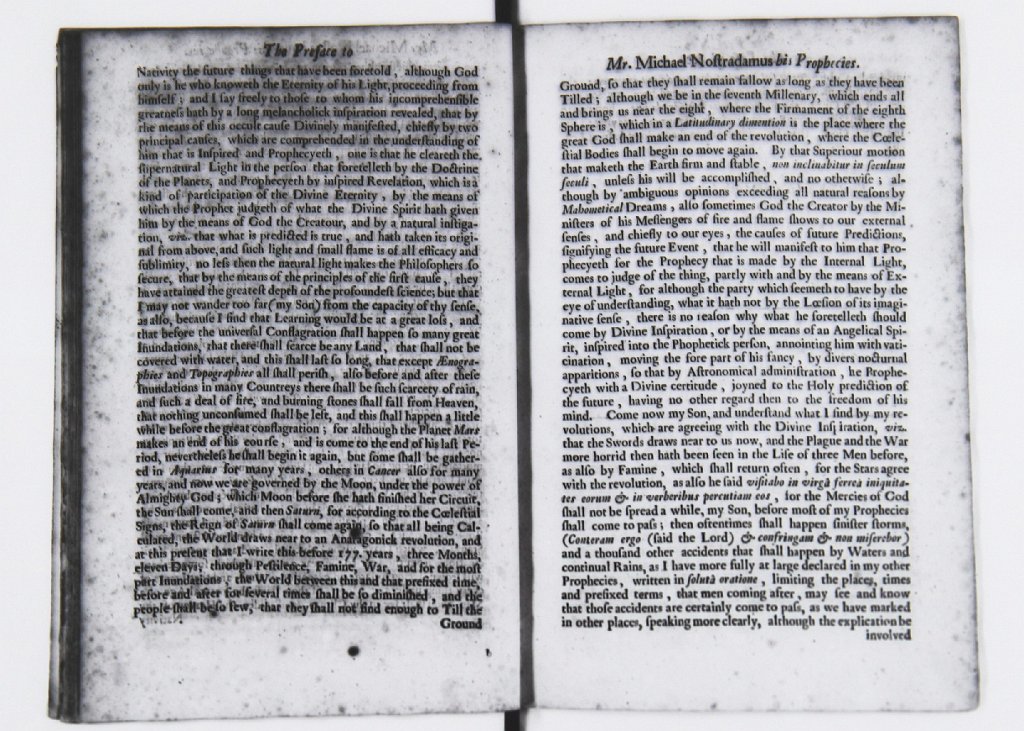 The Preface to
Nativity the future things that have been foretold, although God
only is he who knoweth the Eternity of his Light, proceeding from
himself; and I ſay freely to thoſe to whom his incomprehenſible
greatneſs hath by a long melancholick inſpiration revealed, that by
the means of this occult cauſe Divinely manifeſted, chiefly by two
principal cauſes, which are comprehended in the underſtanding of
him that is Inſpired and Prophecyeth, one is that he cleareth the
ſupernatural Light in the perſon that foretelleth by the Doctrine
of the Planets, and Prophecyeth by inſpired Revelation, which is a
kind of participation of the Divine Eternity, by the means of
which the Prophet judgeth of what the Divine Spirit hath given
him by the means of God the Creatour, and by a natural inſtiga-
tion, viz. that what is predicted is true, and hath taken its origi-
nal from above, and ſuch light and ſmall flame is of all efficacy and
ſublimity, no leſs then the natural light makes the Philoſophers ſo
ſecure, that by the means of the principles of the firſt cauſe, they
have attained the greateſt depth of the profoundeſt ſcience; but that
I may not wander too far (my Son) from the capacity of thy ſenſe,
as alſo, becauſe I find that Learning would be at a great loſs, and
that before the univerſal Conflagration ſhall happen ſo many great
Inundations, that there ſhall ſcarce be any Land, that ſhall not be
covered with water, and this ſhall laſt ſo long, that except Ænogra-
phies and Topographies all ſhall periſh, alſo before and after theſe
Inundations in many Countreys there ſhall be ſuch ſcarcety of rain,
and ſuch a deal of fire, and burning ſtones ſhall fall from Heaven,
that nothing unconſumed ſhall be left, and this ſhall happen a little
while before the great conflagration; for although the Planet Mars
makes an end of his courſe, and is come to the end of his laſt Pe-
riod, nevertheleſs he ſhall begin it again, but ſome ſhall be gather-
ed in Aquarius for many years, others in Cancer alſo for many
years, and now we are governed by the Moon, under the power of
Almighty God; which Moon before ſhe hath finiſhed her Circuit,
the Sun ſhall come, and then Saturn, for according to the Cœleſtial
Signs, the Reign of Saturn ſhall come again, ſo that all being Cal-
culated, the World draws near to an Anaragonick revolution, and
at this preſent that I write this before 177. years, three Months,
eleven Days; through Peſtilence, Famine, War, and for the moſt
part Inundations; the World between this and that prefixed time,
before and after for ſeveral times ſhall be ſo diminiſhed, and the
people ſhall be ſo few, that they ſhall not find enough to Till the
Ground
Mr. Michael Noſtradamus his Prophecies.
Ground, ſo that they ſhall remain fallow as long as they have been
Tilled; although we be in the ſeventh Millenary, which ends all
and brings us near the eight, where the Firmament of the eighth
Sphere is, which in a Latitudinary dimention is the place where the
great God ſhall make an end of the revolution, where the Cœle-
ſtial Bodies ſhall begin to move again. By that Superiour motion
that maketh the Earth firm and ſtable, non inclinabitur in ſeculum
ſeculi, unleſs his will be accompliſhed, and no otherwiſe; al-
though by ambiguous opinions exceeding all natural reaſons by
Mahometical Dreams, alſo ſometimes God the Creator by the Mi-
niſters of his Meſſengers of fire and flame ſhows to our external
ſenſes, and chiefly to our eyes, the cauſes of future Predictions,
ſignifying the future Event, that he will manifeſt to him that Pro-
phecyeth for the Prophecy that is made by the Internal Light,
comes to judge of the thing, partly with and by the means of Ex-
ternal Light, for although the party which ſeemeth to have by the
eye of underſtanding, what it hath not by the Lœſion of its imagi-
native ſenſe, there is no reaſon why what he foretelleth ſhould
come by Divine Inſpiration, or by the means of an Angelical Spi-
rit, inſpired into the Prophetick perſon, annointing him with vati-
cination, moving the fore part of his fancy, by divers nocturnal
apparitions, ſo that by Aſtronomical adminiſtration, he Prophe-
cyeth with a Divine certitude, joyned to the Holy prediction of
the future, having no other regard then to the freedom of his
mind. Come now my Son, and underſtand what I find by my re-
volutions, which are agreeing with the Divine Inſpiration, viz.
that the Swords draws near to us now, and the Plague and the War
more horrid then hath been ſeen in the Life of three Men before,
as alſo by Famine, which ſhall return often, for the Stars agree
with the revolution, as alſo he ſaid viſitabo in virgâ ferreâ iniquita-
tes eorum & in verberibus percutiam eos, for the Mercies of God
ſhall not be ſpread a while, my Son, before moſt of my Prophecies
ſhall come to paſs; then oftentimes ſhall happen ſiniſter ſtorms,
(Conteram ergo (ſaid the Lord) & confringam & non miſerebor)
and a thouſand other accidents that ſhall happen by Waters and
continual Rains, as I have more fully at large declared in my other
Prophecies, written in ſolutâ oratione, limiting the places, times
and prefixed terms, that men coming after, may ſee and know
that thoſe accidents are certainly come to paſs, as we have marked
in other places, ſpeaking more clearly, although the explication be
involved